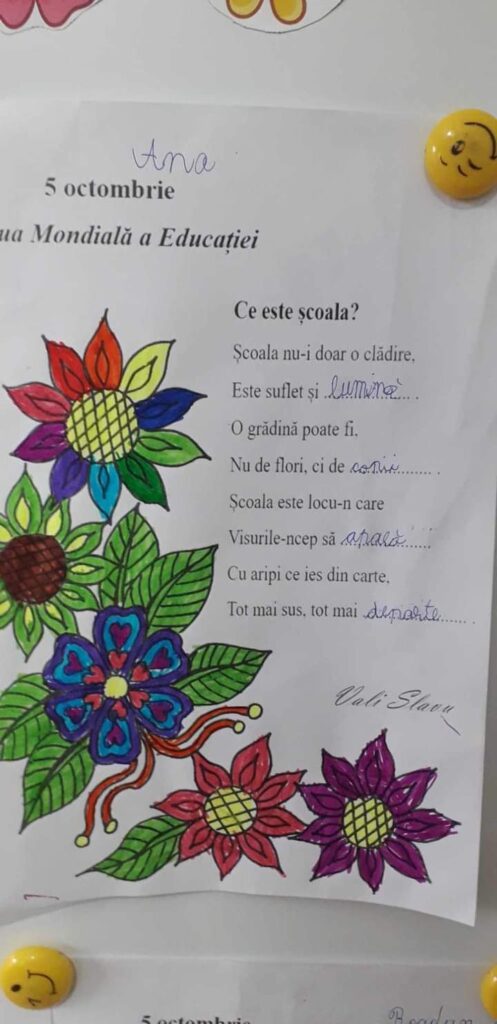 Ana
5 octombrie
ua Mondială a Educației
Ce este școala?
Școala nu-i doar o clădire,
Este suflet și lumină
O grădină poate fi.
Nu de flori, ci de copii
Școala este locu-n care
Visurile-ncep să apară
Cu aripi ce ies din carte,
Tot mai sus, tot mai departe
Vali Slavu
5 octombrie
Bogdan